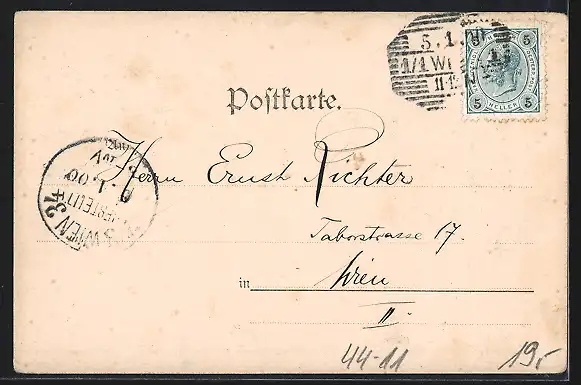 5.1.00
1/1 WI
5 5
5 HELLER 5
Postkarte.
Herrn Ernst Richter
Taborstrasse 17.
in Wien
II
WIEN
6.1.00
44-11
19,-